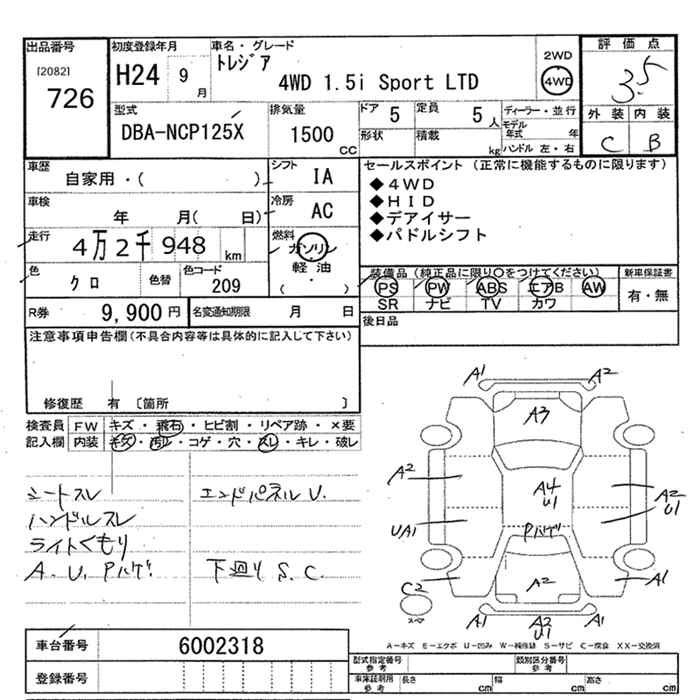 出品番号 初度登録年月 車名・グレード 評価点
[2082] H24 9 月 トレジア 2WD
726 4WD 1.5i Sport LTD 4WD 3.5
型式 排気量 ドア 5 定員 5 人 ディーラー・並行 外装 内装
DBA-NCP125X 1500 CC 形状 積載 kg モデル年式 年 C B
ハンドル 左・右
車歴 シフト セールスポイント (正常に機能するものに限ります)
自家用・( ) IA ◆4WD
車検 冷房 ◆HID
年 月( 日) AC ◆デアイサー
走行 燃料 ◆パドルシフト
4万2千948 km ガソリン
色 色替 色コード 軽油 装備品(純正品に限り○をつけてください) 新車保証書
クロ 209 ( ・ ) PS PW ABS エアB AW 有・無
SR ナビ TV カワ
R券 9,900円 名変通知期限 月 日 後日品
注意事項申告欄(不具合内容等は具体的に記入して下さい)
修復歴 有 〔箇所 〕
検査員 FW キズ・飛石・ヒビ割・リペア跡・×要
記入欄 内装 キズ・汚レ・コゲ・穴・スレ・キレ・破レ
シートスレ エンドパネルU.
ハンドルスレ
ライトくもり
A. U. Pハゲ! 下廻り S. C.
A1 A2
A3
A2 A4 A2
U1 U1
UA1 Pハゲ
C2 A2 A1
スペア A1 A2 A1
U1
A-キズ E-エクボ U-凹み W-補修跡 S-サビ C-腐食 XX-交換済
車台番号 6002318
登録番号
型式指定番号 参考 類別区分番号 参考
車庫証明用 参考 長さ cm 幅 cm 高さ cm